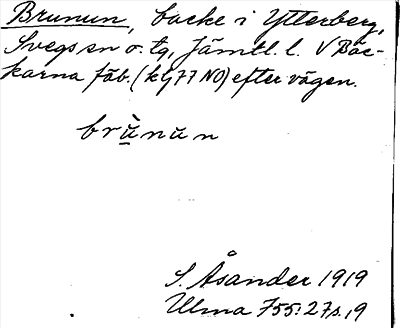 Brunun, backe i Ytterberg,
Svegs sn o. tg, Jämtl. l. V Bäc-
karna fäb. (klj 77 NO) efter vägen.
brùnun
S. Åsander 1919
Ulma 755:27 s. 19